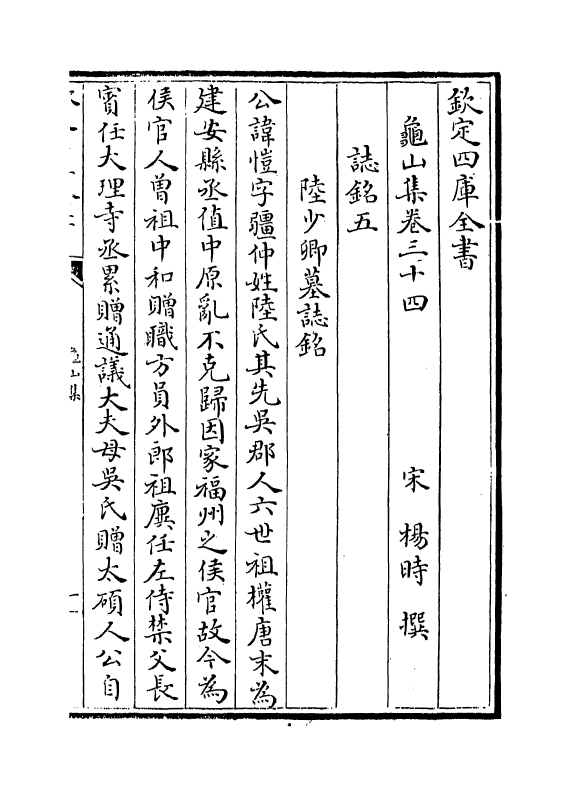 欽定四庫全書
龜山集卷三十四
宋 楊時 撰
誌銘五
陸少卿墓誌銘
公諱愷字疆仲姓陸氏其先吳郡人六世祖權唐末為
建安縣丞值中原亂不克歸因家福州之侯官故今為
侯官人曾祖中和贈職方員外郎祖廙任左侍禁父長
賓任大理寺丞累贈通議大夫母吳氏贈太碩人公自